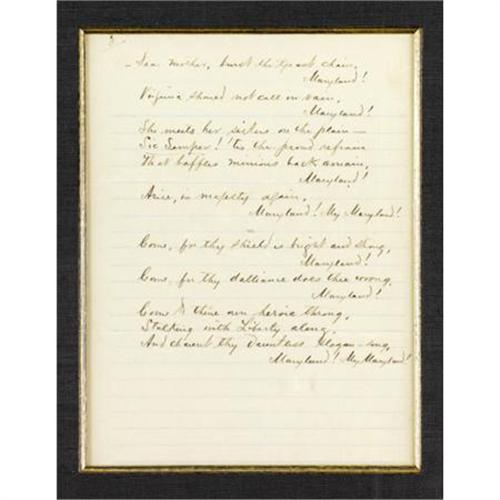 Dear Mother, burst the tyrant chain,
Maryland!
Virginia should not call in vain,
Maryland!
She meets her sisters on the plain —
Sic Semper! 'tis the proud refrain
That baffles minions back amain,
Maryland!
Arise, in majesty again,
Maryland! My Maryland!
Come, for thy shield is bright and strong,
Maryland!
Come, for thy dalliance does thee wrong,
Maryland!
Come to thine own heroic throng,
Stalking with Liberty along,
And chaunt thy dauntless slogan-song,
Maryland! My Maryland!